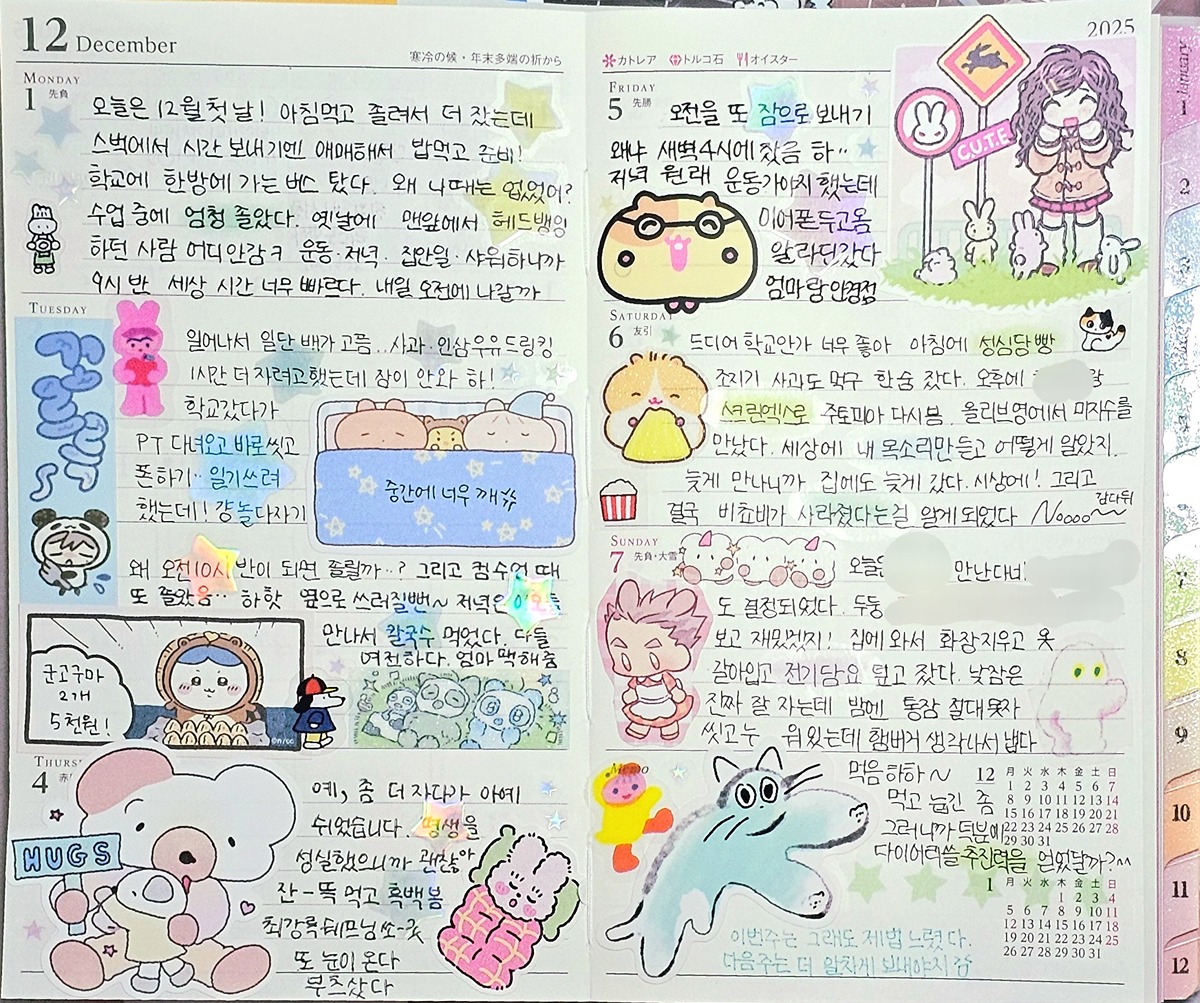 12 December
寒冷の候・年末多端の折から
MONDAY
1 先負
오늘은 12월 첫 날! 아침먹고 졸려서 더 잤는데
스벅에서 시간 보내기엔 애매해서 밥먹고 준비!
학교에 한방에 가는 버스 탔다. 왜 나때는 없었어?
수업 중에 엄청 졸았다. 옛날에 맨앞에서 헤드뱅잉
하던 사람 어디안감ㅋ 운동·저녁·집안일·샤워하니까
9시 반 세상 시간 너무 빠르다. 내일 오전에 나갈까
TUESDAY
일어나서 일단 배가 고픔.. 사과·인삼우유드링킹
1시간 더 자려고했는데 잠이 안와 하!
학교갔다가
PT 다녀오고 바로씻고
폰하기.. 일기쓰려
했는데! 걍놀다자기
중간에 너무 깨
왜 오전10시 반이 되면 졸릴까..? 그리고 컴수업 때
또 졸았음.. 하핫 옆으로 쓰러질뻔~ 저녁은
만나서 칼국수 먹었다. 다들
여전하다. 엄마 떡해줌
군고구마
2개
5천원!
©nrcc
THURS
4
HUGS
예, 좀 더 자다가 아예
쉬었습니다. 평생을
성실했으니까 괜찮아
잔-뜩 먹고 흑백봄
최강록 쉐프님 쏘-굿
또 눈이 온다
부츠샀다
2025
カトレア トルコ石 オイスター
FRIDAY
5 先勝
오전을 또 잠으로 보내기
왜냐 새벽4시에 잤음 하..
저녁 원래 운동가야지 했는데
이어폰두고옴
알라딘갔다
엄마랑 안경점
C.U.T.E.
SATURDAY
6 友引
드디어 학교안가 너무 좋아 아침에 성심당빵
조지기 사과도 먹구 한숨 잤다. 오후에
스크린엑스로 주토피아 다시봄. 올리브영에서 미자수를
만났다. 세상에 내 목소리만듣고 어떻게 알았지.
늦게 만나니까 집에도 늦게 갔다. 시상에! 그리고
결국 비쵸비가 사라졌다는걸 알게되었다 Noooo~~ 갔다뒤
SUNDAY
7 先負・大雪
오늘은 만난대네
도 결정되었다. 두둥
보고 재밌겠지! 집에 와서 화장지우고 옷
갈아입고 전기담요 덮고 잤다. 낮잠은
진짜 잘 자는데 밤엔 통잠 절대못자
씻고누워있는데 햄버거 생각나서 냅다
Memo
먹음하하~
먹고 늘긴 좀
그러니까 덕분에
다이어리쓸 추진력을 얻었달까?^^
12 月 火 水 木 金 土 日
1 2 3 4 5 6 7
8 9 10 11 12 13 14
15 16 17 18 19 20 21
22 23 24 25 26 27 28
29 30 31
1 月 火 水 木 金 土 日
1 2 3 4
5 6 7 8 9 10 11
12 13 14 15 16 17 18
19 20 21 22 23 24 25
26 27 28 29 30 31
이번주는 그래도 제법 느렸다.
다음주는 더 알차게 보내야지
January
1
2
3
5
7
8
9
10
11
12